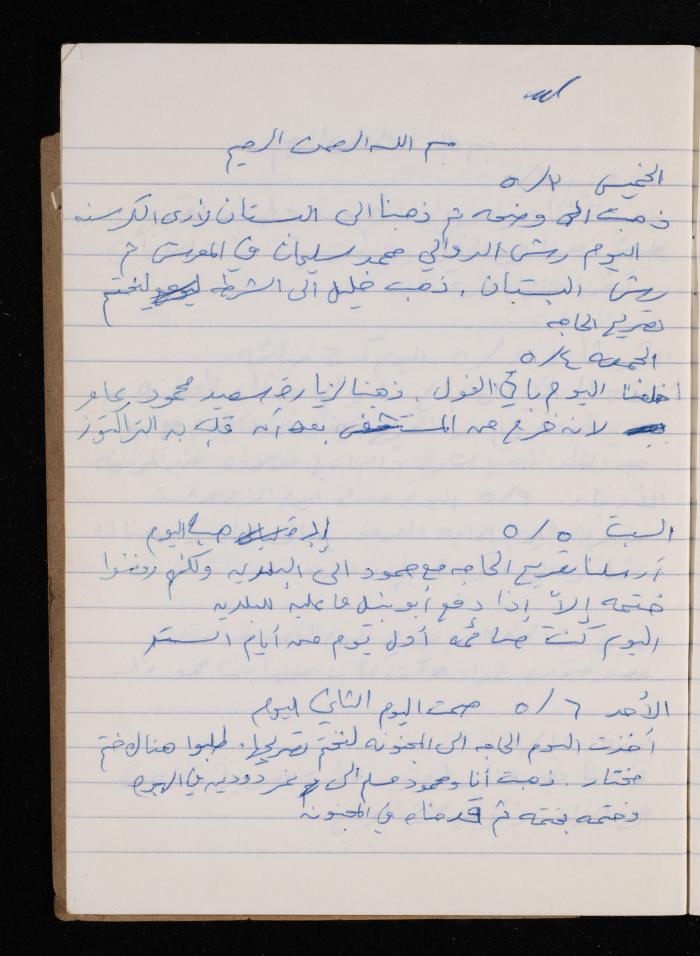 بسم الله الرحمن الرحيم
الخميس ٥/٣
ذهبت الى وضحه ثم ذهبنا الى البستان لأرى الكرسنه
اليوم رش الدوالي محمد سليمان في المعرش ثم
رش البستان. ذهب خليل الى الشرطه ليختم
تصريح الحاجه
الجمعه ٥/٤
اليوم باقي الفول. ذهبنا لزيارة سعيد محمود عامر
لانه خرج من المستشفى بعد أن قلب به التراكتور
السبت ٥/٥ اليوم
أرسلنا تصريح الحاجه مع حمود الى البلديه ولكنهم رفضوا
ختمه إلاّ إذا دفع أبو نبيل ما عليه للبلديه
اليوم كنت صائمه أول يوم من أيام الستة
الأحد ٥/٦ صمت اليوم الثاني اليوم
أخذت اليوم الحاجه الى المجنونه لنختم تصريحها. طلبوا هناك ختم
مختار. ذهبت أنا وحمود مسلم الى نمر دودين في
وختمه بختمه ثم قدمناه في المجنونة